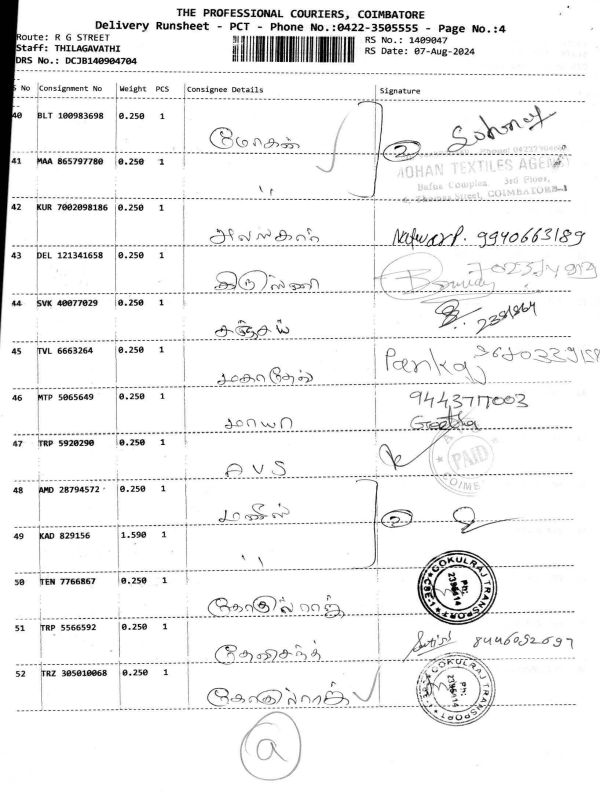 THE PROFESSIONAL COURIERS, COIMBATORE
Delivery Runsheet - PCT - Phone No.:0422-3505555 - Page No.:4
Route: R G STREET
RS No.: 1409047
Staff: THILAGAVATHI
RS Date: 07-Aug-2024
DRS No.: DCJB140904704
S No Consignment No Weight PCS Consignee Details Signature
40 BLT 100983698 0.250 1
மோகன் 2
41 MAA 865797780 0.250 1
MOHAN TEXTILES AGENCY
3rd Floor,
COIMBATORE-1
"
42 KUR 7002098186 0.250 1
அலங்கார் 9940663189
43 DEL 121341658 0.250 1
44 SVK 40077029 0.250 1
சஞ்சய்
45 TVL 6663264 0.250 1
Pankaj
46 MTP 5065649 0.250 1
மாயா
9443717003
Geetha
47 TRP 5920290 0.250 1
AVS
PAID
48 AMD 28794572 0.250 1
2
49 KAD 829156 1.590 1
"
50 TEN 7766867 0.250 1
கோகுல்ராஜ்
GOKULRAJ TRANSPORT CBE-1 PH: 2396614
51 TRP 5566592 0.250 1
52 TRZ 305010068 0.250 1
கோகுல்ராஜ்
GOKULRAJ TRANSPORT CBE-1 PH: 2396614
a